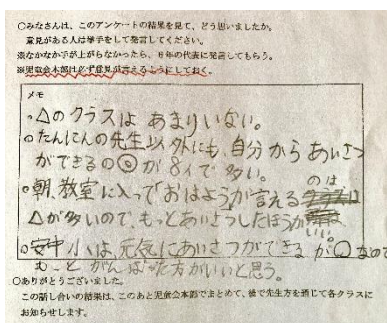 ○みなさんは、このアンケートの結果を見て、どう思いましたか。
意見がある人は挙手をして発言してください。
※なかなか手が上がらなかったら、6年の代表に発言してもらう。
※児童会本部は必ず意見が言えるようにしておく。
メモ
。△のクラスは あまりいない。
。たんにんの先生以外にも、自分から あいさつ
ができるの◎が 8人で 多い。
。朝、教室に入って「おはようが言える のは
△が多いので、もっとあいさつしたほうが いい。
。安中小は、元気にあいさつができる が○なので
もっと がんばった方がいいと思う。
○ありがとうございました。
この話し合いの結果は、このあと児童会本部でまとめて、後で先生方を通じて各クラスに
お知らせします。